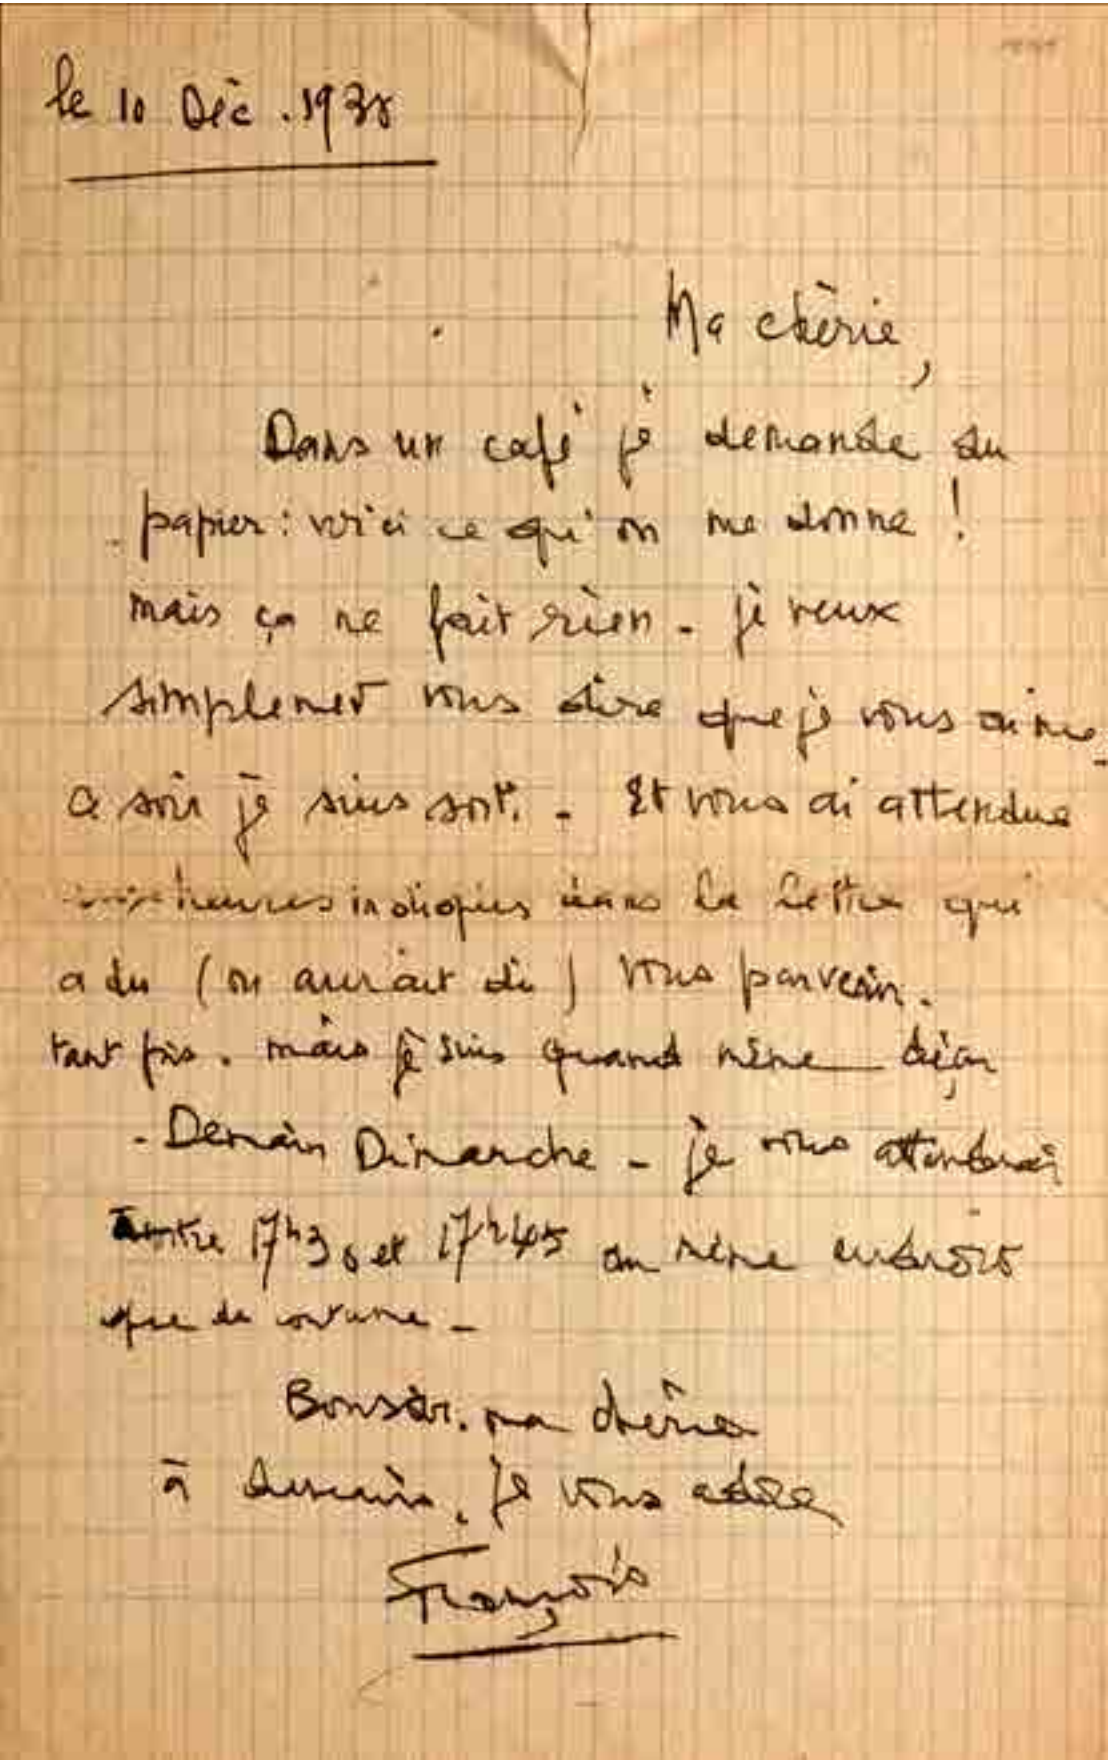 le 10 Déc. 1938
Ma chérie,
Dans un café je demande du
papier : voici ce qu'on me donne !
mais ça ne fait rien - je veux
simplement vous dire que je vous aime -
Ce soir je suis sorti. - Et vous ai attendue
heures indiquées dans la lettre qui
a du (ou aurait du) vous parvenir.
tant pis. mais je suis quand même déçu
- Demain Dimanche - je vous attendrai
entre 17h30 et 17h45 au même endroit
que de coutume -
Bonsoir. ma chérie
à demain, je vous adore
François